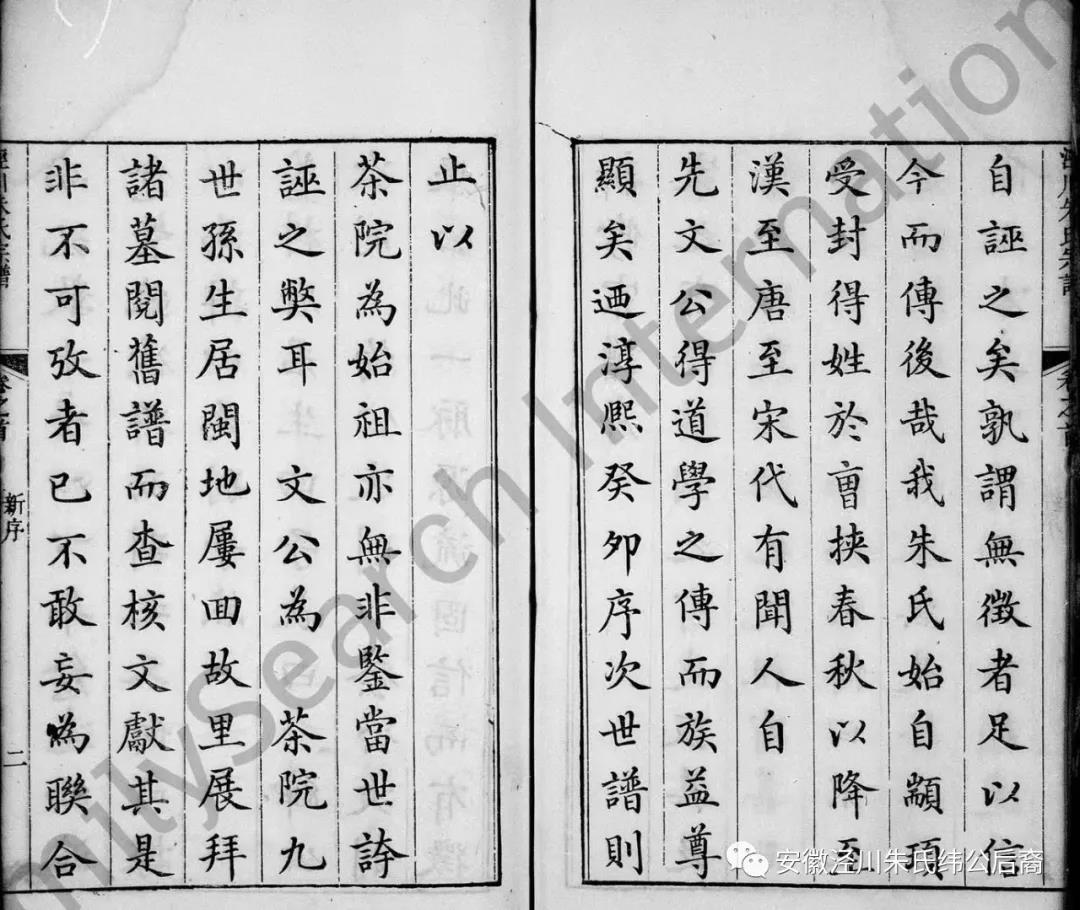 自誣之矣孰謂無徵者足以信
今而傳後哉我朱氏始自顓頊
受封得姓於曹挾春秋以降至
漢至唐至宋代有聞人自
先文公得道學之傳而族益尊
顯矣迺淳熙癸卯序次世譜則
止以
茶院為始祖亦無非鑒當世誇
誣之獘耳 文公為 茶院九
世孫生居閩地屢回故里展拜
諸墓閱舊譜而查核文獻其是
非不可攷者已不敢妄為聯合
新序
二
FamilySearch International
安徽泾川朱氏纬公后裔